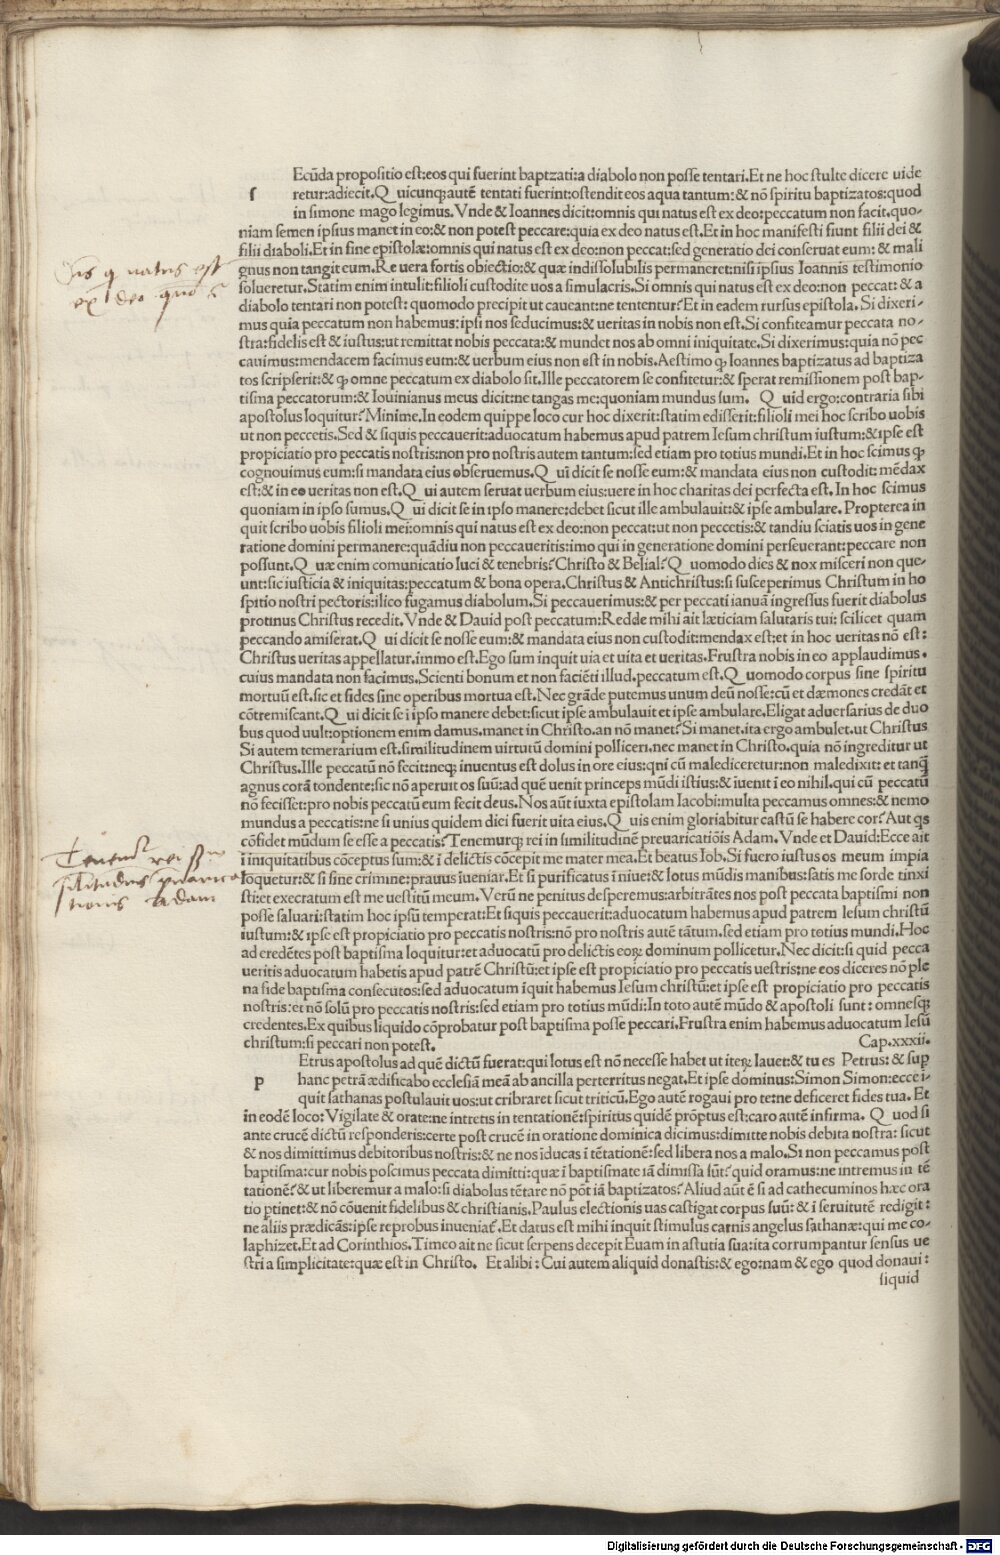 Ecūda propositio est:eos qui fuerint baptzati:a diabolo non posse tentari.Et ne hoc stulte dicere uide
ſ retur:adiecit.Q uicunq;autē tentati fuerint:ostendit eos aqua tantum:& nō spiritu baptizatos:quod
in simone mago legimus.Vnde & Ioannes dicit:omnis qui natus est ex deo:peccatum non facit.quo-
niam semen ipsius manet in eo:& non potest peccare:quia ex deo natus est.Et in hoc manifesti fiunt filii dei &
filii diaboli.Et in fine epistolæ:omnis qui natus est ex deo:non peccat:sed generatio dei conseruat eum:& mali
gnus non tangit eum.Re uera fortis obiectio:& quæ indissolubilis permaneret:nisi ipsius Ioannis testimonio
solueretur.Statim enim intulit:filioli custodite uos a simulacris.Si omnis qui natus est ex deo:non peccat:& a
diabolo tentari non potest:quomodo precipit ut caueant:ne tententur?Et in eadem rursus epistola.Si dixeri-
mus quia peccatum non habemus:ipsi nos seducimus:& ueritas in nobis non est.Si confiteamur peccata no-
stra:fidelis est & iustus:ut remittat nobis peccata:& mundet nos ab omni iniquitate.Si dixerimus:quia nō pec
cauimus:mendacem facimus eum:& uerbum eius non est in nobis.Aestimo ꝙ Ioannes baptizatus ad baptiza
tos scripserit:& ꝙ omne peccatum ex diabolo sit.Ille peccatorem se confitetur:& sperat remissionem post bap-
tisma peccatorum:& Iouinianus meus dicit:ne tangas me:quoniam mundus sum. Q uid ergo:contraria sibi
apostolus loquitur?Minime.In eodem quippe loco cur hoc dixerit:statim edisserit:filioli mei hoc scribo uobis
ut non peccetis.Sed & siquis peccauerit:aduocatum habemus apud patrem Iesum christum iustum:&ipse est
propiciatio pro peccatis nostris:non pro nostris autem tantum:sed etiam pro totius mundi.Et in hoc scimus ꝙ
cognouimus eum:si mandata eius obseruemus.Q ui dicit se nosse eum:& mandata eius non custodit:mēdax
est:& in eo ueritas non est.Q ui autem seruat uerbum eius:uere in hoc charitas dei perfecta est.In hoc scimus
quoniam in ipso sumus.Q ui dicit se in ipso manere:debet sicut ille ambulauit:& ipse ambulare.Propterea in
quit scribo uobis filioli mei:omnis qui natus est ex deo:non peccat:ut non peccetis:& tandiu sciatis uos in gene
ratione domini permanere:quādiu non peccaueritis:imo qui in generatione domini perseuerant:peccare non
possunt.Q uæ enim comunicatio luci & tenebris?Christo & Belial?Q uomodo dies & nox misceri non que-
unt:sic iusticia & iniquitas:peccatum & bona opera.Christus & Antichristus:si susceperimus Christum in ho
spitio nostri pectoris:ilico fugamus diabolum.Si peccauerimus:& per peccati ianuā ingressus fuerit diabolus
protinus Christus recedit.Vnde & Dauid post peccatum:Redde mihi ait læticiam salutaris tui:scilicet quam
peccando amiserat.Q ui dicit se nosse eum:& mandata eius non custodit:mendax est:et in hoc ueritas nō est:
Christus ueritas appellatur.immo est.Ego sum inquit uia et uita et ueritas.Frustra nobis in eo applaudimus.
cuius mandata non facimus.Scienti bonum et non faciēti illud.peccatum est.Q uomodo corpus sine spiritu
mortuū est.sic et fides sine operibus mortua est.Nec grāde putemus unum deū nosse:cū et dæmones credāt et
cōtremiscant.Q ui dicit se ī ipso manere debet:sicut ipse ambulauit et ipse ambulare.Eligat aduersarius de duo
bus quod uult:optionem enim damus.manet in Christo.an nō manet?Si manet.ita ergo ambulet.ut Christus
Si autem temerarium est.similitudinem uirtutū domini polliceri.nec manet in Christo.quia nō ingreditur ut
Christus.Ille peccatū nō fecit:neq; inuentus est dolus in ore eius:qni cū malediceretur:non maledixit:et tanq̄
agnus corā tondente:sic nō aperuit os suū:ad quē uenit princeps mūdi istius:& iuenit ī eo nihil.qui cū peccatū
nō fecisset:pro nobis peccatū eum fecit deus.Nos aūt iuxta epistolam Iacobi:multa peccamus omnes:& nemo
mundus a peccatis:ne si unius quidem diei fuerit uita eius.Q uis enim gloriabitur castū se habere cor?Aut qs
cōfidet mūdum se esse a peccatis?Tenemurq; rei in similitudinē preuaricatiōis Adam.Vnde et Dauid:Ecce ait
ī iniquitatibus cōceptus sum:& ī delictis cōcepit me mater mea.Et beatus Iob.Si fuero iustus os meum impia
loquetur:& si sine crimine:prauus īueniar.Et si purificatus ī niue:& lotus mūdis manibus:satis me sorde tinxi
sti:et execratum est me uestitū meum.Verū ne penitus desperemus:arbitrātes nos post peccata baptismi non
posse saluari:statim hoc ipsū temperat:Et siquis peccauerit:aduocatum habemus apud patrem Iesum christū
iustum:& ipse est propiciatio pro peccatis nostris:nō pro nostris autē tātum.sed etiam pro totius mundi.Hoc
ad credētes post baptisma loquitur:et aduocatū pro delictis eoꝝ dominum pollicetur.Nec dicit:si quid pecca
ueritis aduocatum habetis apud patrē Christū:et ipse est propiciatio pro peccatis uestris:ne eos diceres nō ple
na fide baptisma consecutos:sed aduocatum īquit habemus Iesum christū:et ipse est propiciatio pro peccatis
nostris:et nō solū pro peccatis nostris:sed etiam pro totius mūdi:In toto autē mūdo & apostoli sunt:omnesq;
credentes.Ex quibus liquido cōprobatur post baptisma posse peccari.Frustra enim habemus aduocatum Iesū
christum:si peccari non potest. Cap.xxxii.
Etrus apostolus ad quē dictū fuerat:qui lotus est nō necesse habet ut iteꝝ lauet:& tu es Petrus:& sup
p hanc petrā ædificabo ecclesiā meā ab ancilla perterritus negat.Et ipse dominus:Simon Simon:ecce i-
quit sathanas postulauit uos:ut cribraret sicut triticū.Ego autē rogaui pro te:ne deficeret fides tua. Et
in eodē loco:Vigilate & orate:ne intretis in tentationē:spiritus quidē prōptus est:caro autē infirma. Q uod si
ante crucē dictū responderis:certe post crucē in oratione dominica dicimus:dimitte nobis debita nostra:sicut
& nos dimittimus debitoribus nostris:& ne nos īducas ī tētationē:sed libera nos a malo.Si non peccamus post
baptisma:cur nobis poscimus peccata dimitti:quæ ī baptismate iā dimissa sūt?quid oramus:ne intremus in tē
tationē?& ut liberemur a malo:si diabolus tētare nō pōt iā baptizatos?Aliud aūt ē si ad cathecuminos hæc ora
tio ptinet:& nō cōuenit fidelibus & christianis.Paulus electionis uas castigat corpus suū:& ī seruitutē redigit:
ne aliis prædicās:ipse reprobus inueniat̄.Et datus est mihi inquit stimulus carnis angelus sathanæ:qui me co-
laphizet.Et ad Corinthios.Timeo ait ne sicut serpens decepit Euam in astutia sua:ita corrumpantur sensus ue
stri a simplicitate:quæ est in Christo. Et alibi:Cui autem aliquid donastis:& ego:nam & ego quod donaui:
siquid
q natus est
ex deo
rei
Adam
Digitalisierung gefördert durch die Deutsche Forschungsgemeinschaft - DFG